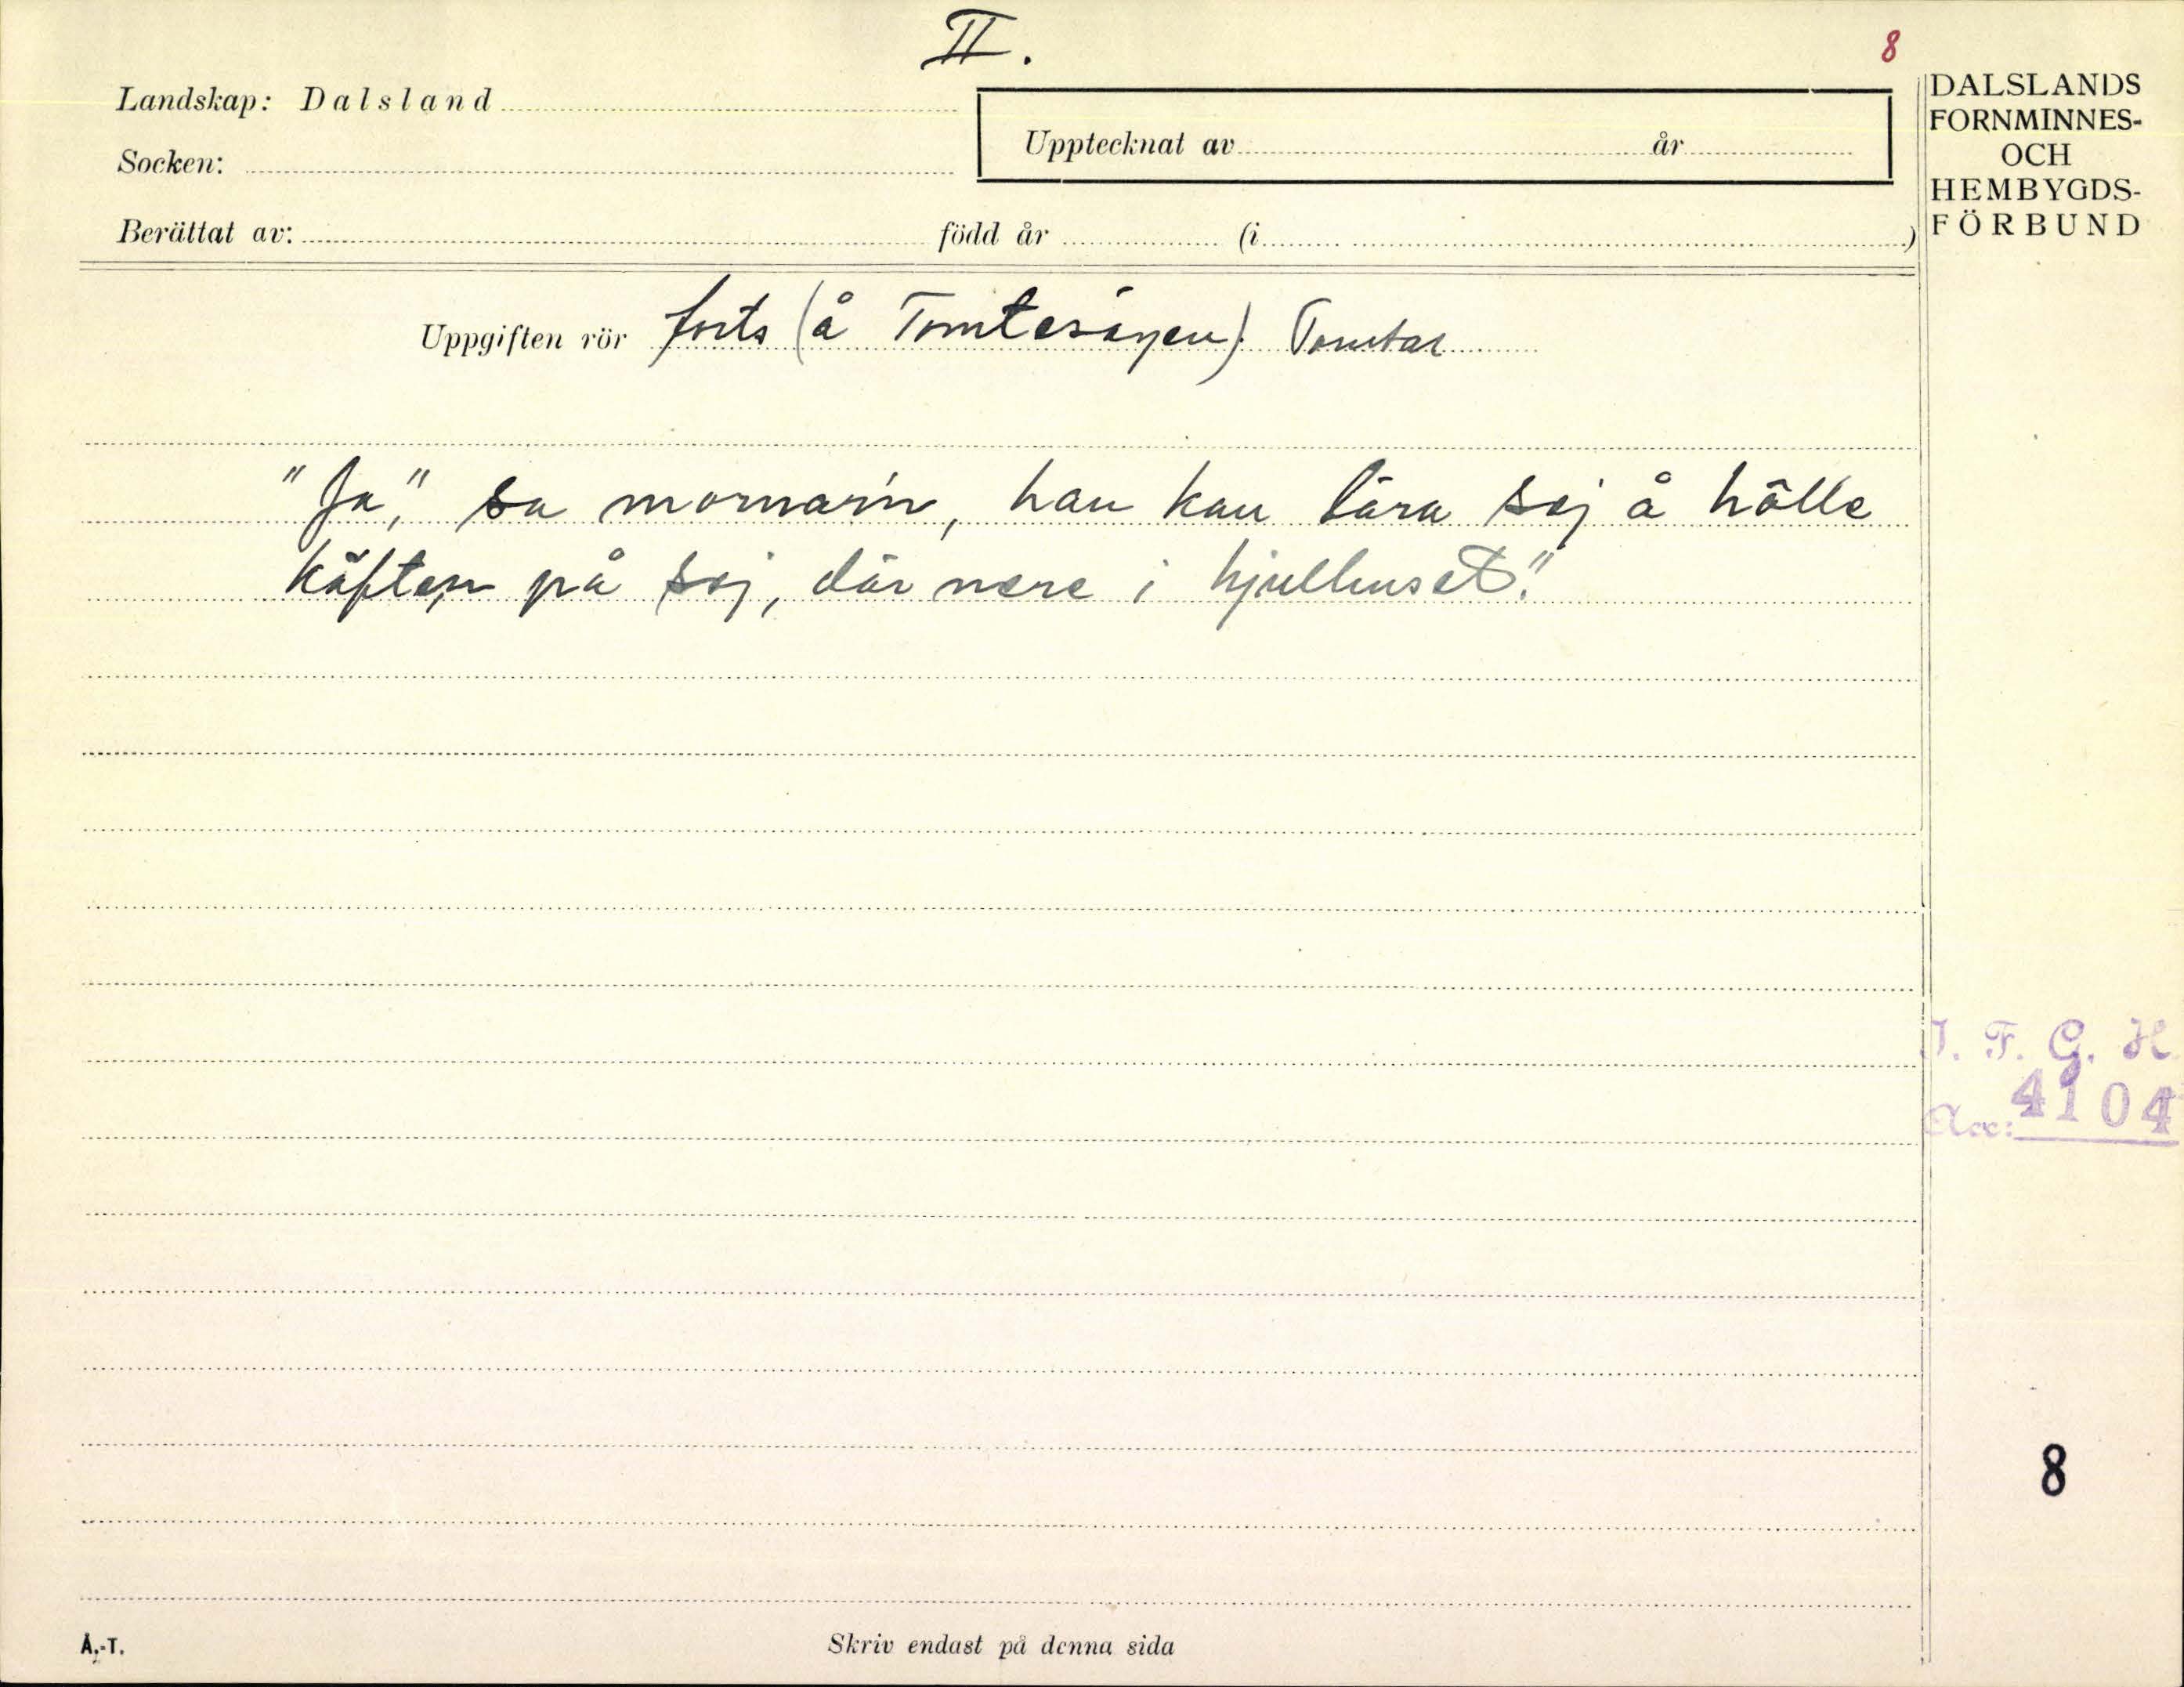 II.
8
Landskap: Dalsland
Upptecknat av år
Socken:
Berättat av: född år (i )
DALSLANDS
FORNMINNES-
OCH
HEMBYGDS-
FÖRBUND
Uppgiften rör forts (å Tomtesägen). Tomtar
"Ja," sa mornarin, han kan lära sej å hålle
käften på sej, där nere i hjullhuset."
I. F. G. H.
Acc: 4104
8
Å.-T.
Skriv endast på denna sida